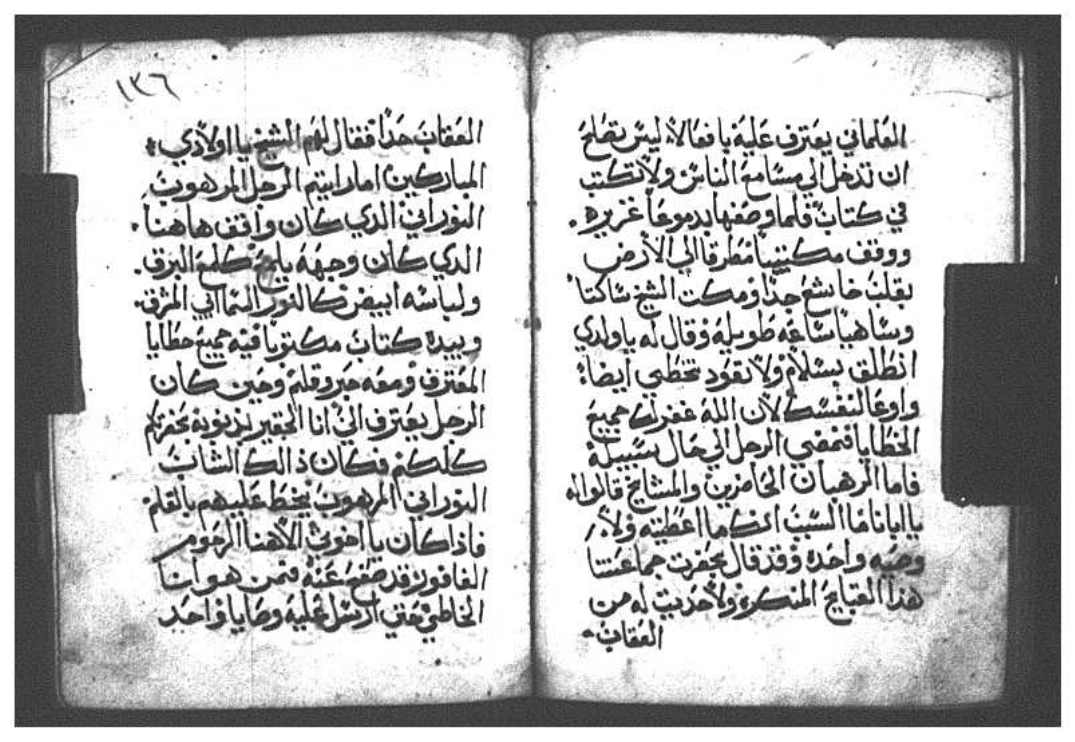 العلماني يعترف عليه بافعالا ليس تصلح
ان تدخل الي مسامع الناس ولا تكتب
في كتاب فلما وصفها بدموعا غزيره.
ووقف مكتيبا مطرقا الي الارض
بقلب خاشع جدا ومكت الشيخ ساكتا
وساهيا ساعه طويله وقال له ياولدي
انطلق بسلام ولا تعود تخطي ايضا:
واوعا لنفسك لان الله غفر لك جميع
الخطايا فمضي الرجل الي حال سبيله
فاما الرهبان الحاضرين والمشايخ قالوا له
يا ابانا ما السبب انك ما اعطيته ولا
وصيه واحده وقد قال بحضرت جماعتنا
هذا القبايح المنكره ولا حديت له من
العقاب
١٣٦
العقاب حدا فقال لهم الشيخ يا اولادي
المباركين اما رايتم الرجل المرهوب
النوراني الدي كان واقف هاهنا.
الدي كان وجهه كلمع البرق.
ولباسه ابيض كالنور المشرق.
وبيده كتاب مكتوبا فيه جميع خطايا
المعترف ومعه حبر وقلم وحين كان
الرجل يعترف الي انا الحقير بدنوبه بحضرتكم
كلكم فكان ذالك الشاب
النوراني المرهوب يخط عليهم بالقلم
فاذا كان يا اخوتي الاهنا الرحوم
الغافور قد صفح عنه فمن هو انا
الخاطي حتي ارسل عليه وصايا واحد